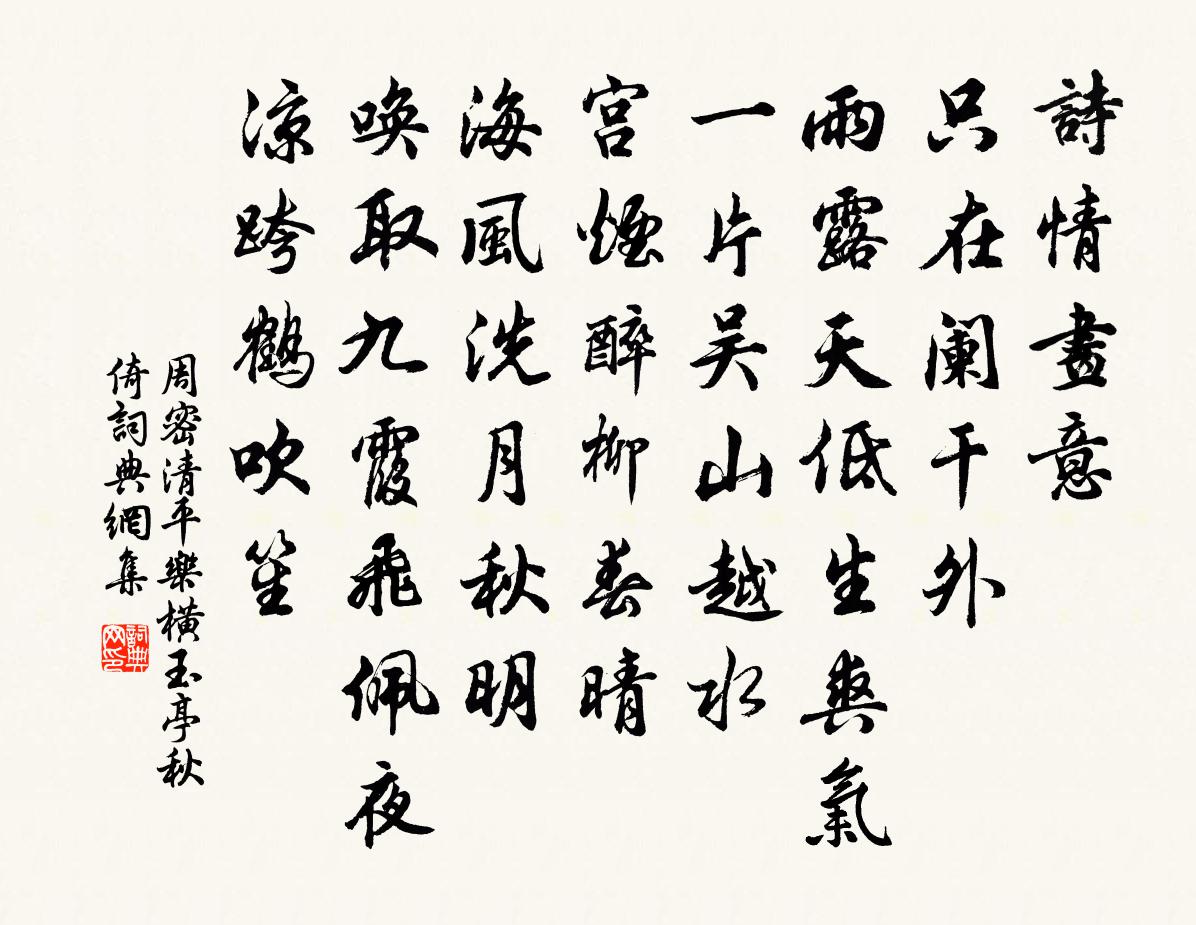 詩情畫意
只在阑干外
雨露天低生爽氣
一片吴山越水
宫煙醉柳春晴
海風洗月秋明
唤取九霞飛佩夜
涼跨鶴吹笙
周密清平樂橫玉亭秋
倚詞典網集
詞典网印